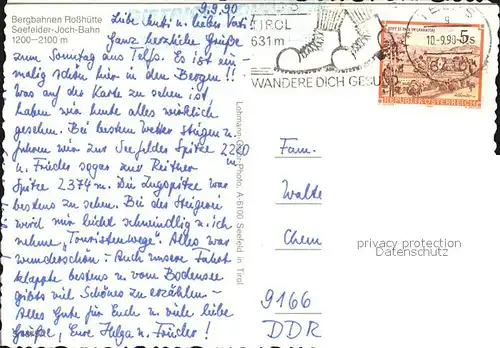 Bergbahnen Roßhütte
Seefelder-Joch-Bahn
1200–2100 m
9.9.90
Liebe Mutti u. lieber Vati!
Ganz herzliche Grüße
zum Sonntag aus Telfs. Es ist ein-
malig schön hier in den Bergen!!
Was auf der Karte zu sehen ist,
haben wir heute alles wirklich
gesehen. Bei bestem Wetter stiegen u.
fuhren wir zur Seefelder Spitze 2220 m
u. Frieder sogar zur Reither
Spitze 2374 m. Die Zugspitze war
bestens zu sehen. Bei der Steigerei
wird mir leicht schwindlig u. ich
nehme „Touristenwege". Alles war
wunderschön – Auch unsere Fahrt
klappte bestens u. vom Bodensee
gibts viel Schönes zu erzählen –
Alles Gute für Euch u. viele liebe
Grüße, Eure Helga u. Frieder!
A 6100 Seefeld in Tirol
TIROL
631 m
WANDERE DICH GESU
10.-9.90
5s
REPUBLIK ÖSTERREICH
Fam.
Walte
Chem
9166
DDR
privacy protection
Datenschutz